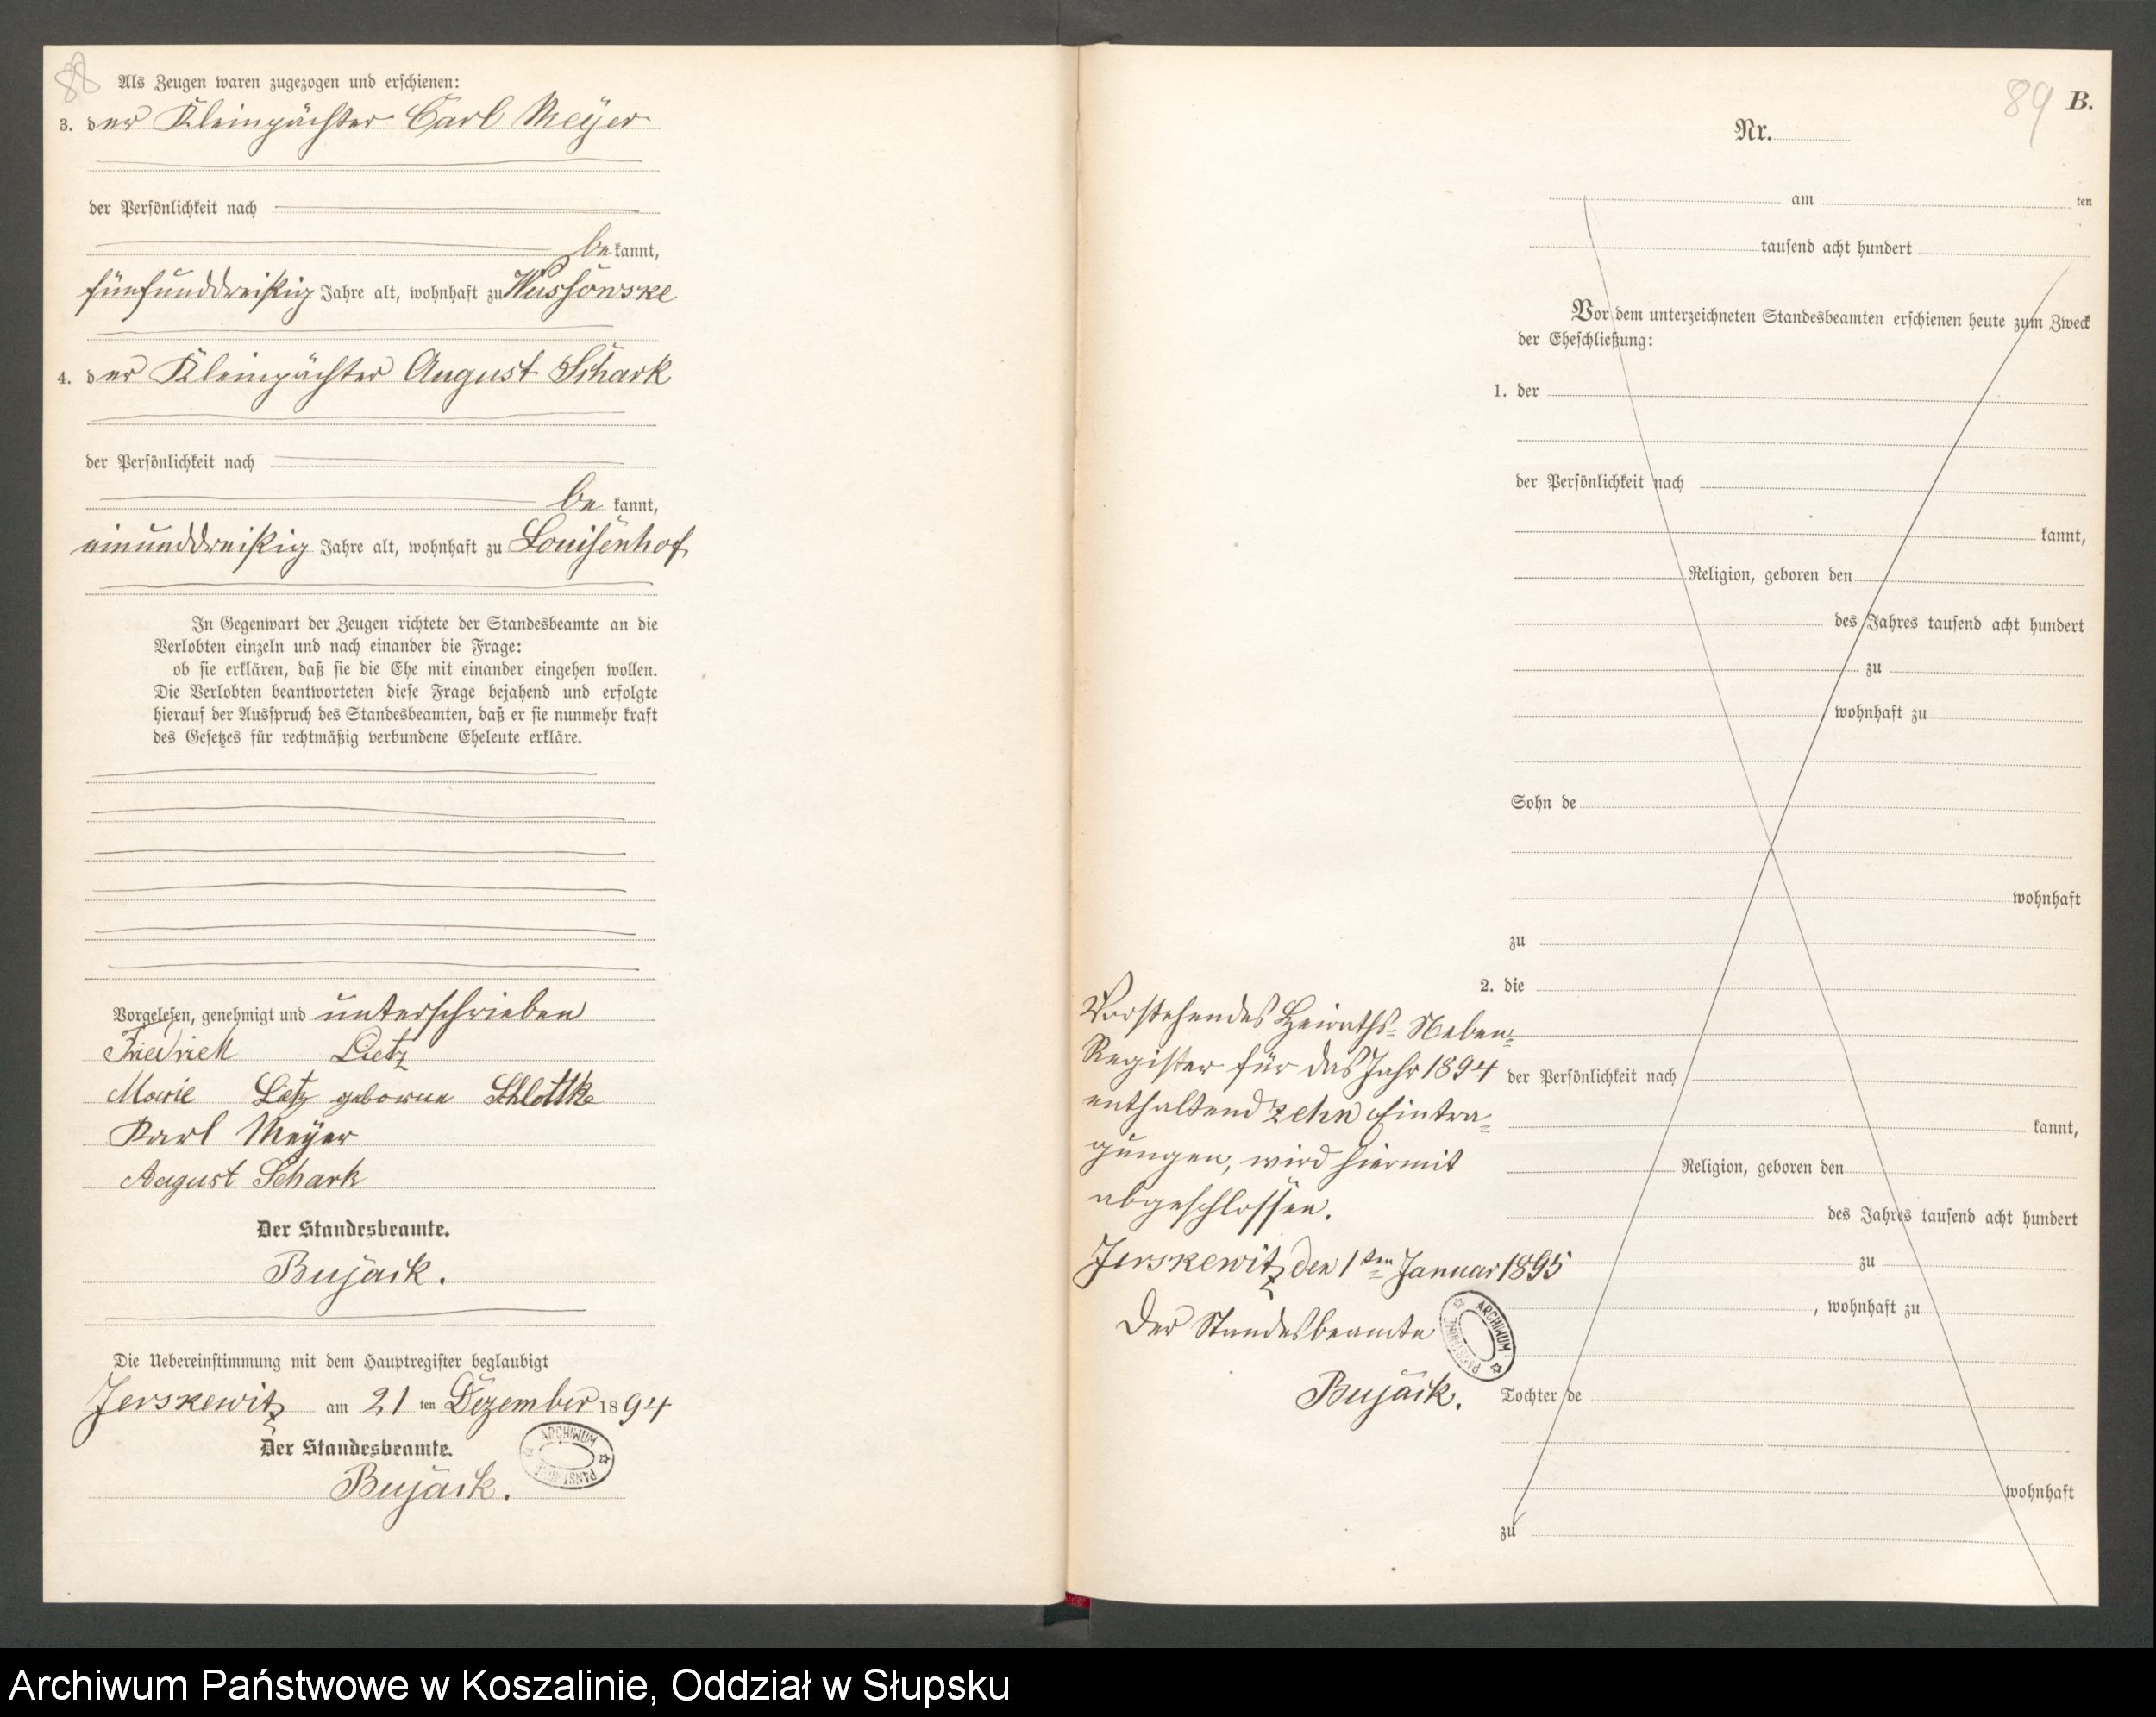 88
Als Zeugen waren zugezogen und erschienen:
3. der Kleinpächter Carl Meyer
der Persönlichkeit nach
be kannt,
fünfunddreißig Jahre alt, wohnhaft zu Wussowske
4. der Kleinpächter August Schark
der Persönlichkeit nach
be kannt,
einunddreißig Jahre alt, wohnhaft zu Louisenhof
In Gegenwart der Zeugen richtete der Standesbeamte an die
Verlobten einzeln und nach einander die Frage:
ob sie erklären, daß sie die Ehe mit einander eingehen wollen.
Die Verlobten beantworteten diese Frage bejahend und erfolgte
hierauf der Ausspruch des Standesbeamten, daß er sie nunmehr kraft
des Gesetzes für rechtmäßig verbundene Eheleute erkläre.
Vorgelesen, genehmigt und unterschrieben
Friedrich Lietz
Marie Lietz geborne Schlottke
Karl Meyer
August Schark
Der Standesbeamte.
Bujack.
Die Uebereinstimmung mit dem Hauptregister beglaubigt
Jerskewitz am 21 ten Dezember 1894
Der Standesbeamte.
Bujack.
ARCHIWUM PAŃSTWOWE
89 B.
Nr.
am ten
tausend acht hundert
Vor dem unterzeichneten Standesbeamten erschienen heute zum Zweck
der Eheschließung:
1. der
der Persönlichkeit nach
kannt,
Religion, geboren den
des Jahres tausend acht hundert
zu
wohnhaft zu
Sohn de
wohnhaft
zu
2. die
der Persönlichkeit nach
kannt,
Religion, geboren den
des Jahres tausend acht hundert
zu
, wohnhaft zu
Tochter de
wohnhaft
zu
Vorstehendes Heiraths-Neben-
Register für das Jahr 1894
enthaltend zehn Eintra-
gungen, wird hiermit
abgeschlossen.
Jerskewitz den 1ten Januar 1895
Der Standesbeamte
Bujack.
ARCHIWUM PAŃSTWOWE
Archiwum Państwowe w Koszalinie, Oddział w Słupsku